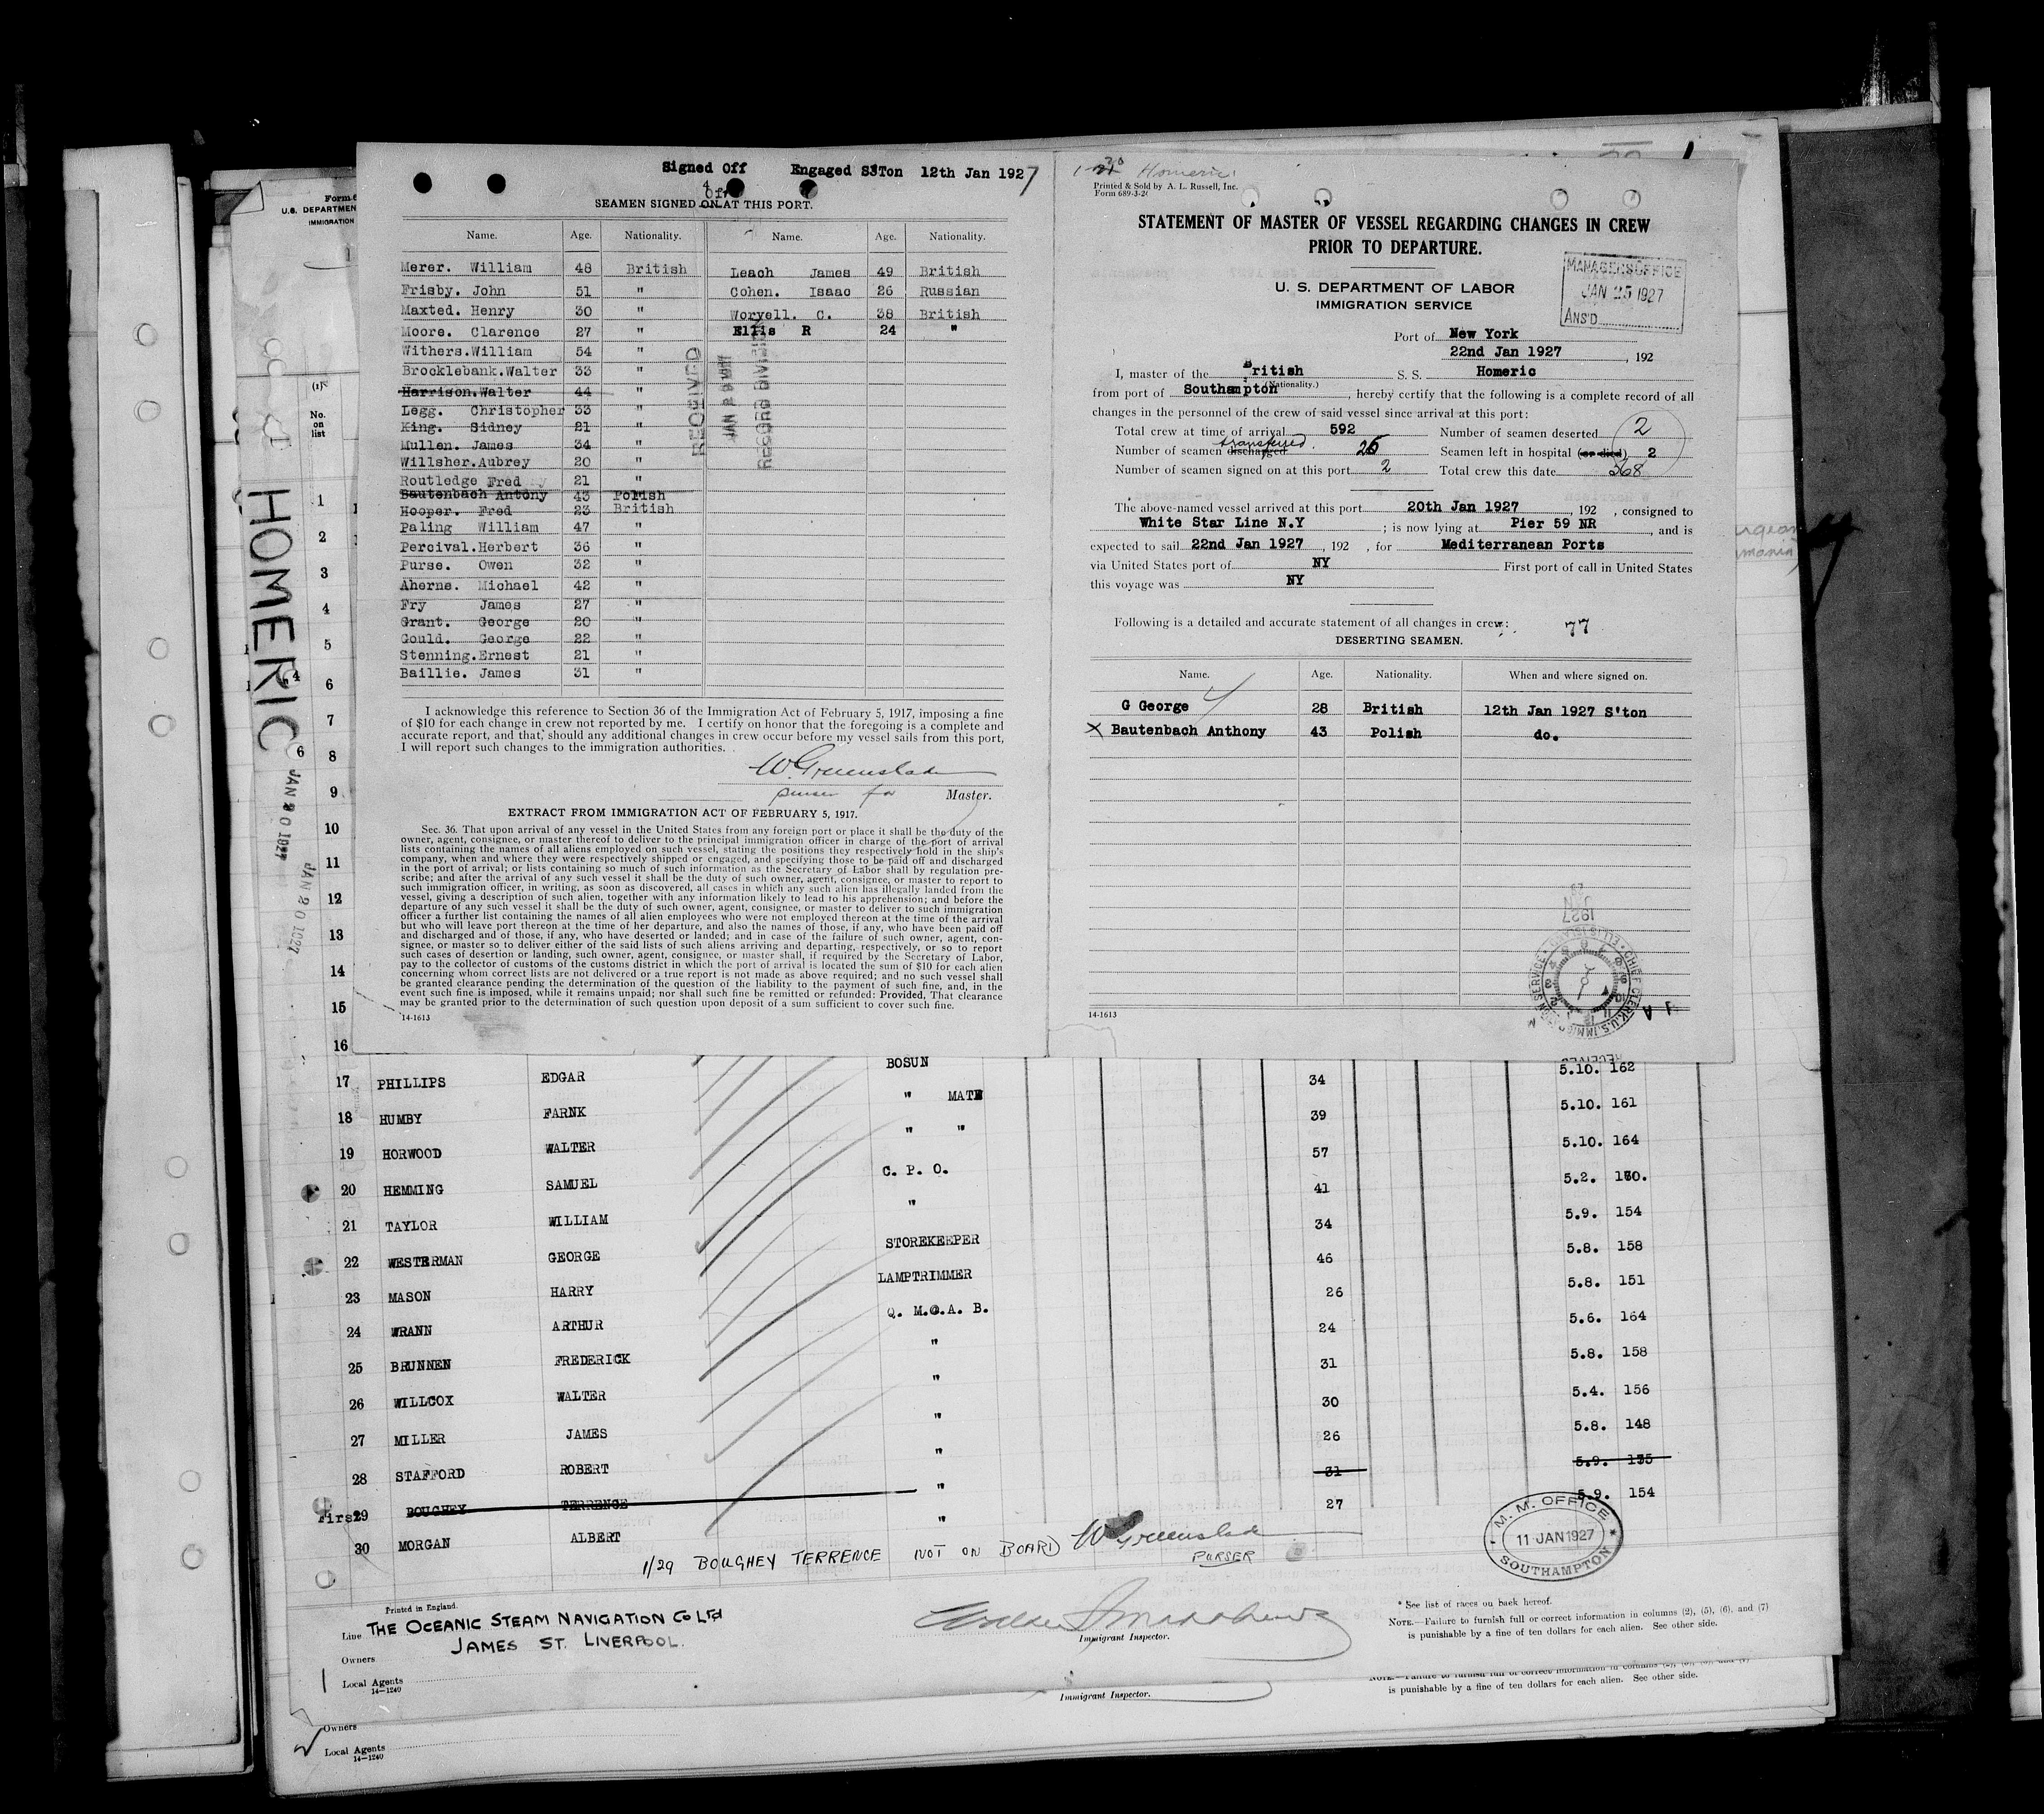 Signed Off Engaged S'Ton 12th Jan 1927
Off
SEAMEN SIGNED ON AT THIS PORT.
Name. Age. Nationality. Name. Age. Nationality.
Merer. William 48 British Leach James 49 British
Frisby. John 51 " Cohen. Isaac 26 Russian
Maxted. Henry 30 " Woryell. C. 38 British
Moore. Clarence 27 " Ellis R 24 "
Withers. William 54 "
Brocklebank. Walter 33 "
Harrison. Walter 44 "
Legg. Christopher 33 "
King. Sidney 21 "
Mullen. James 34 "
Willsher. Aubrey 20 "
Routledge Fred 21 "
Bautenbach Antony 43 Polish
Hooper. Fred 23 British
Paling William 47 "
Percival. Herbert 36 "
Purse. Owen 32 "
Aherne. Michael 42 "
Fry James 27 "
Grant. George 20 "
Gould. George 22 "
Stenning. Ernest 21 "
Baillie. James 31 "
RECEIVED
RECORD DIVISION
I acknowledge this reference to Section 36 of the Immigration Act of February 5, 1917, imposing a fine
of $10 for each change in crew not reported by me. I certify on honor that the foregoing is a complete and
accurate report, and that, should any additional changes in crew occur before my vessel sails from this port,
I will report such changes to the immigration authorities.
W. Greenslade
purser for Master.
EXTRACT FROM IMMIGRATION ACT OF FEBRUARY 5, 1917.
Sec. 36. That upon arrival of any vessel in the United States from any foreign port or place it shall be the duty of the
owner, agent, consignee, or master thereof to deliver to the principal immigration officer in charge of the port of arrival
lists containing the names of all aliens employed on such vessel, stating the positions they respectively hold in the ship's
company, when and where they were respectively shipped or engaged, and specifying those to be paid off and discharged
in the port of arrival; or lists containing so much of such information as the Secretary of Labor shall by regulation pre-
scribe; and after the arrival of any such vessel it shall be the duty of such owner, agent, consignee, or master to report to
such immigration officer, in writing, as soon as discovered, all cases in which any such alien has illegally landed from the
vessel, giving a description of such alien, together with any information likely to lead to his apprehension; and before the
departure of any such vessel it shall be the duty of such owner, agent, consignee, or master to deliver to such immigration
officer a further list containing the names of all alien employees who were not employed thereon at the time of the arrival
but who will leave port thereon at the time of her departure, and also the names of those, if any, who have been paid off
and discharged and of those, if any, who have deserted or landed; and in case of the failure of such owner, agent, con-
signee, or master so to deliver either of the said lists of such aliens arriving and departing, respectively, or so to report
such cases of desertion or landing, such owner, agent, consignee, or master shall, if required by the Secretary of Labor,
pay to the collector of customs of the customs district in which the port of arrival is located the sum of $10 for each alien
concerning whom correct lists are not delivered or a true report is not made as above required; and no such vessel shall
be granted clearance pending the determination of the question of the liability to the payment of such fine, and, in the
event such fine is imposed, while it remains unpaid; nor shall such fine be remitted or refunded: Provided, That clearance
may be granted prior to the determination of such question upon deposit of a sum sufficient to cover such fine.
14-1613
Homeric
Printed & Sold by A. L. Russell, Inc.
Form 689-3-2
STATEMENT OF MASTER OF VESSEL REGARDING CHANGES IN CREW
PRIOR TO DEPARTURE.
U. S. DEPARTMENT OF LABOR
IMMIGRATION SERVICE
MANAGERS OFFICE
JAN 25 1927
ANS'D
Port of New York
22nd Jan 1927, 192
I, master of the British S. S. Homeric
(Nationality.)
from port of Southampton, hereby certify that the following is a complete record of all
changes in the personnel of the crew of said vessel since arrival at this port:
Total crew at time of arrival 592 Number of seamen deserted 2
transferred
Number of seamen discharged 26 Seamen left in hospital (or died) 2
Number of seamen signed on at this port 2 Total crew this date 568
The above-named vessel arrived at this port 20th Jan 1927, 192 , consigned to
White Star Line N.Y ; is now lying at Pier 59 NR , and is
expected to sail 22nd Jan 1927 , 192 , for Mediterranean Ports
via United States port of NY First port of call in United States
this voyage was NY
Following is a detailed and accurate statement of all changes in crew: 77
DESERTING SEAMEN.
Name. Age. Nationality. When and where signed on.
G George 28 British 12th Jan 1927 S'ton
X Bautenbach Anthony 43 Polish do.
14-1613
CHIEF CLERK, U.S. IMMIGRATION SERVICE
ELLIS ISLAND
Form
U. S. DEPARTMENT
IMMIGRATION
(1)
No.
on
list
HOMERIC
JAN 20 1927
JAN 20 1927
1
2
3
4
5
6
7
8
9
10
11
12
13
14
15
16
BOSUN
17 PHILLIPS EDGAR 34 5.10. 162
" MATE
18 HUMBY FARNK 39 5.10. 161
" "
19 HORWOOD WALTER 57 5.10. 164
C. P. O.
20 HEMMING SAMUEL 41 5.2.
"
21 TAYLOR WILLIAM 34 5.9. 154
STOREKEEPER
22 WESTERMAN GEORGE 46 5.8. 158
LAMPTRIMMER
23 MASON HARRY 26 5.8. 151
Q. M. A. B.
24 WRANN ARTHUR 24 5.6. 164
"
25 BRUNNEN FREDERICK 31 5.8. 158
"
26 WILLCOX WALTER 30 5.4. 156
"
27 MILLER JAMES 26 5.8. 148
"
28 STAFFORD ROBERT 31 5.9. 135
"
First 29 BOUGHEY TERRENCE 27 5.9. 154
"
30 MORGAN ALBERT
1/29 BOUGHEY TERRENCE NOT ON BOARD W Greenslade
PURSER
M. M. OFFICE
11 JAN 1927
SOUTHAMPTON
Printed in England.
Line THE OCEANIC STEAM NAVIGATION Co Ltd
JAMES ST. LIVERPOOL.
Owners
Local Agents
14-1240
Immigrant Inspector.
* See list of races on back hereof.
NOTE.—Failure to furnish full or correct information in columns (2), (5), (6), and (7)
is punishable by a fine of ten dollars for each alien. See other side.
NOTE.—Failure to furnish full or correct information in columns
is punishable by a fine of ten dollars for each alien. See other side.
Immigrant Inspector.
Owners
Local Agents
14-1240